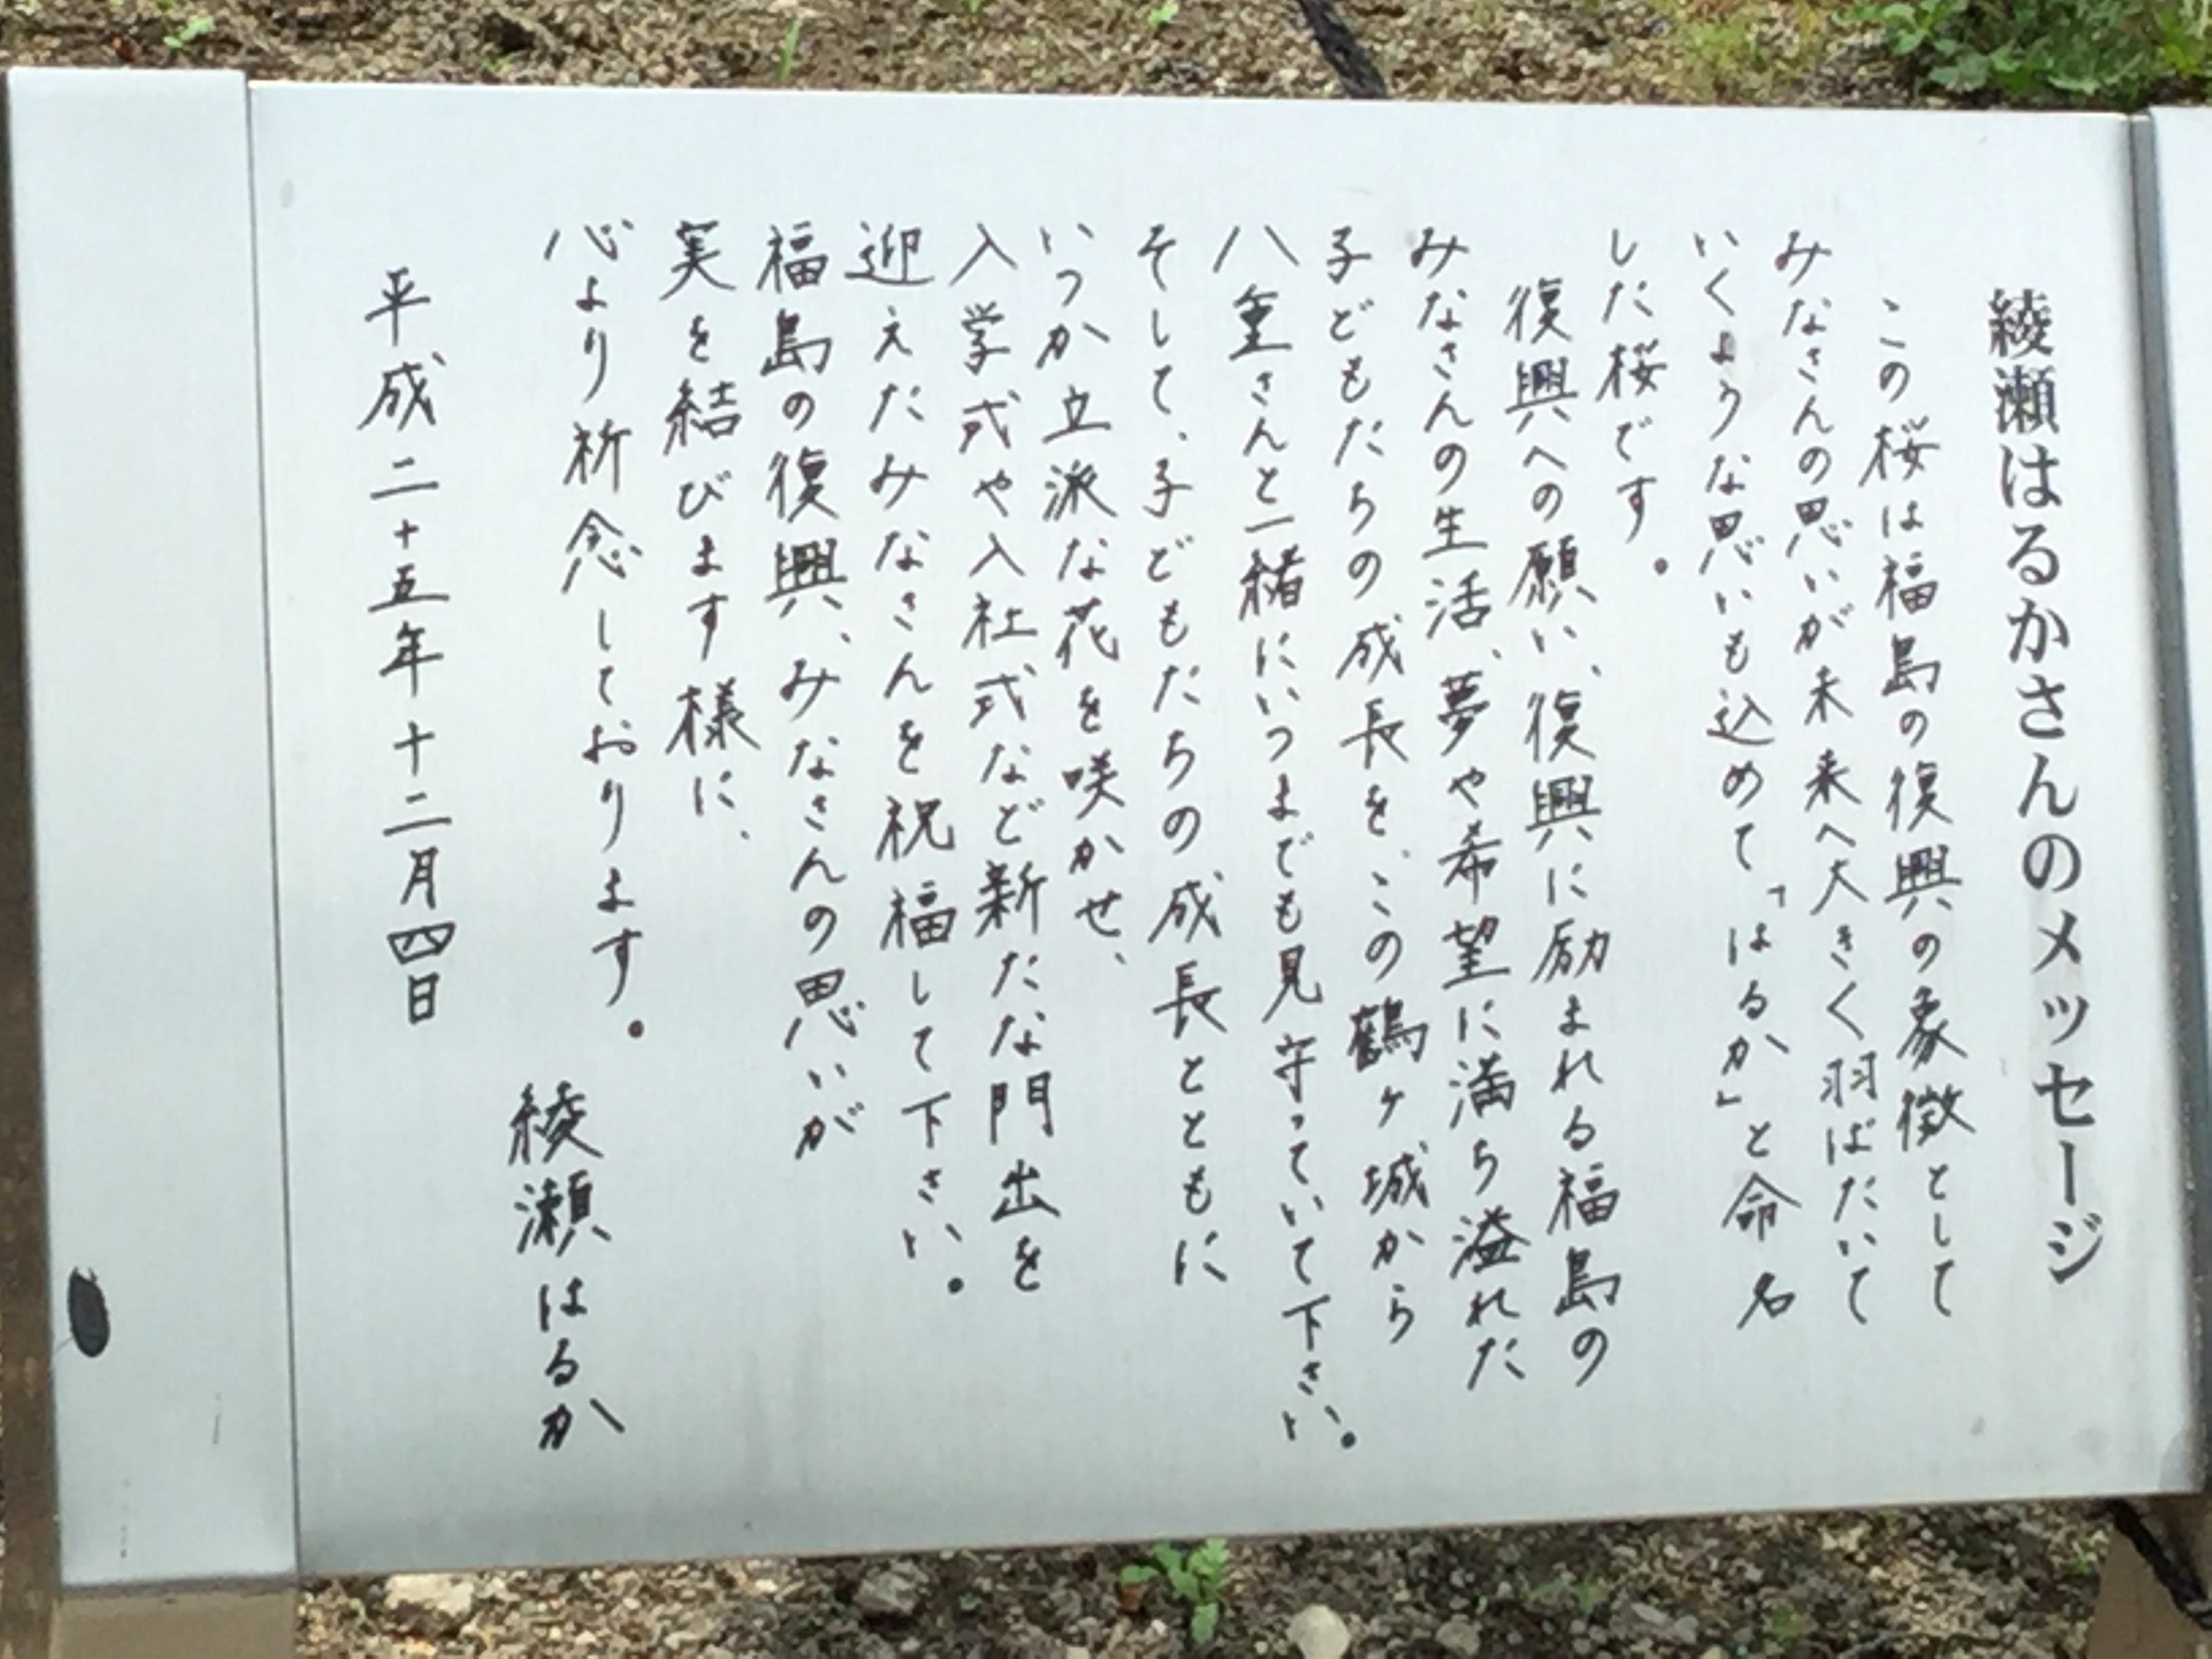 綾瀬はるかさんのメッセージ
この桜は福島の復興の象徴として
みなさんの思いが未来へ大きく羽ばたいて
いくような思いも込めて「はるか」と命名
した桜です。
復興への願い、復興に励まれる福島の
みなさんの生活、夢や希望に満ち溢れた
子どもたちの成長を、この鶴ヶ城から
八重さんと一緒にいつまでも見守っていて下さい。
そして、子どもたちの成長とともに
いつか立派な花を咲かせ、
入学式や入社式など新たな門出を
迎えたみなさんを祝福して下さい。
福島の復興、みなさんの思いが
実を結びます様に、
心より祈念しております。
綾瀬はるか
平成二十五年十二月四日